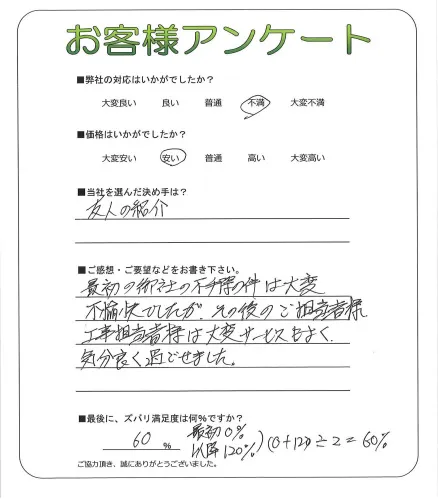 お客様アンケート
■弊社の対応はいかがでしたか？
大変良い 良い 普通 不満 大変不満
■価格はいかがでしたか？
大変安い 安い 普通 高い 大変高い
■当社を選んだ決め手は？
友人の紹介
■ご感想・ご要望などをお書き下さい。
最初の御社の不手際の件は大変
不愉快でしたが、その後のご担当者様
工事担当者様は大変サービスもよく、
気分良く過ごせました。
■最後に、ズバリ満足度は何％ですか？
最初0%
60 % 以降120% (0+120)÷2=60%
ご協力頂き、誠にありがとうございました。